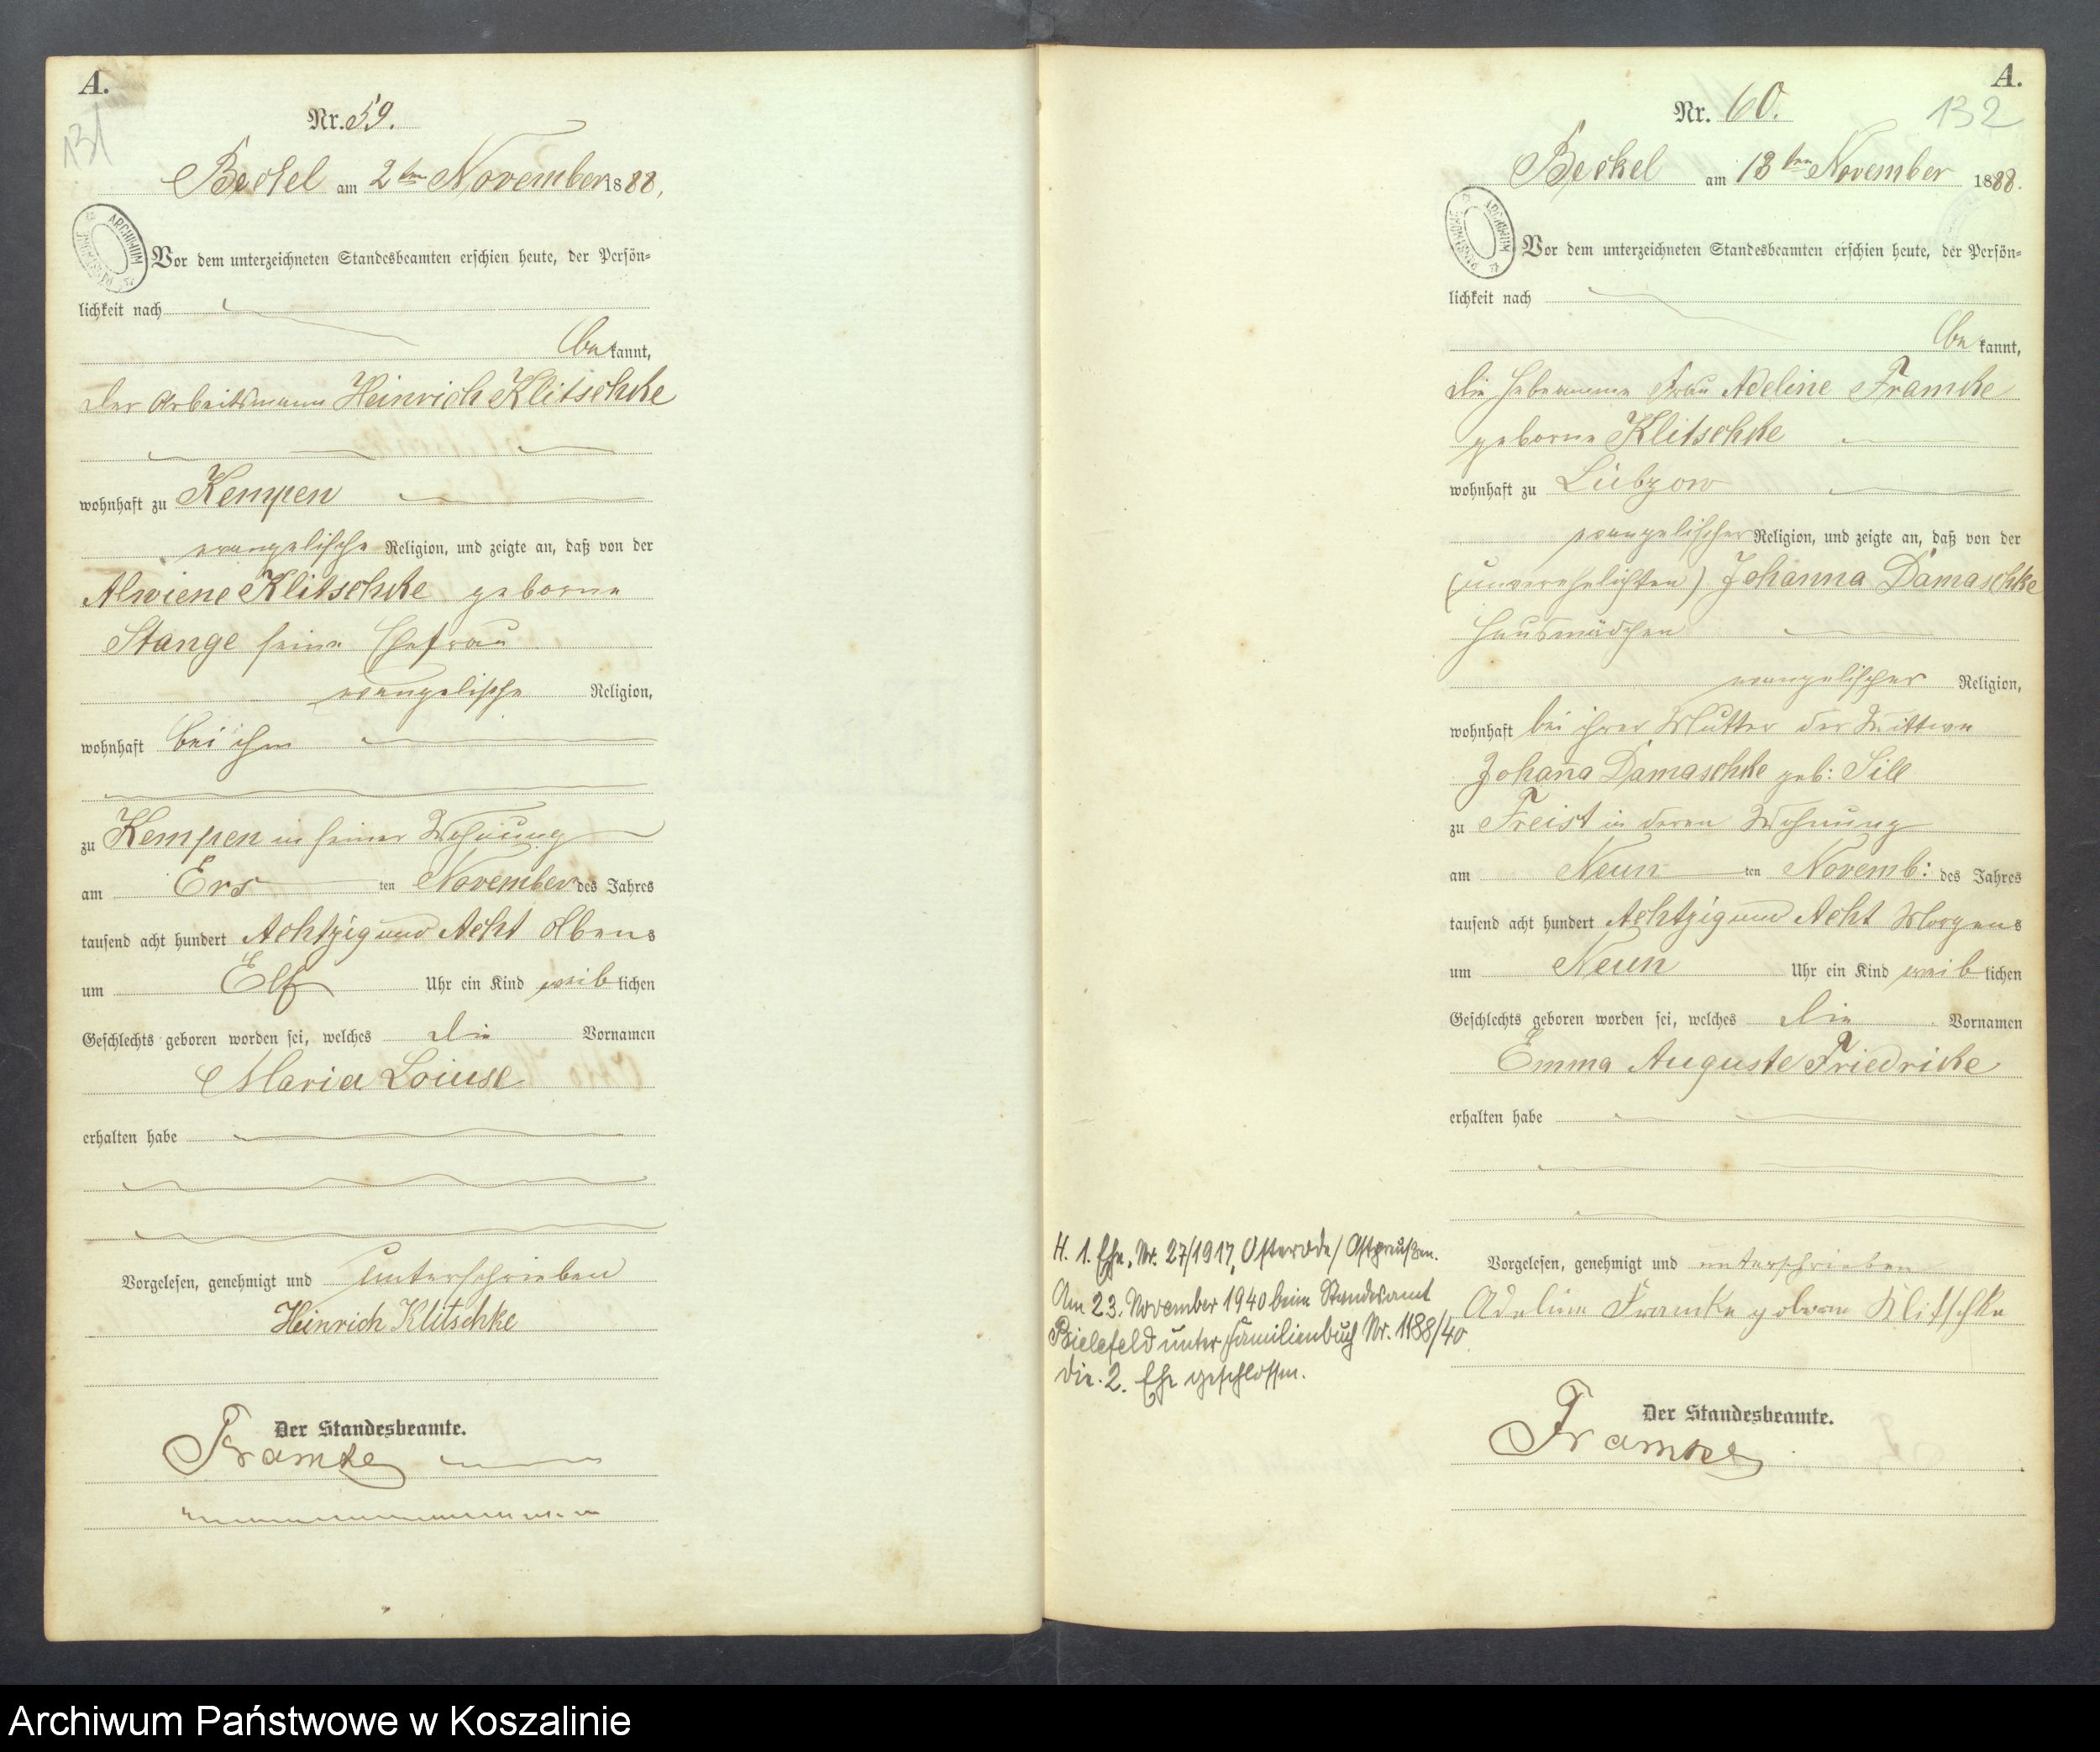 A.
131
Nr. 59.
Beckel am 2ten November 1888,
ARCHIWUM
Vor dem unterzeichneten Standesbeamten erschien heute, der Persön=
lichkeit nach
be kannt,
der Arbeitsmann Heinrich Klitschke
wohnhaft zu Kempen
evangelische Religion, und zeigte an, daß von der
Alwiene Klitschke geborne
Stange seine Ehefrau
evangelische Religion,
wohnhaft bei ihm
zu Kempen in seiner Wohnung
am Ers ten November des Jahres
tausend acht hundert Achtzig und Acht Abens
um Elf Uhr ein Kind weib lichen
Geschlechts geboren worden sei, welches die Vornamen
Maria Louise
erhalten habe
Vorgelesen, genehmigt und unterschrieben
Heinrich Klitschke
Der Standesbeamte.
Framke
A.
132
Nr. 60.
Beckel am 13ten November 1888.
ARCHIWUM
Vor dem unterzeichneten Standesbeamten erschien heute, der Persön=
lichkeit nach
be kannt,
die Hebeamme Frau Adeline Framke
geborne Klitschke
wohnhaft zu Lübzow
evangelischer Religion, und zeigte an, daß von der
(unverehelichten) Johanna Damaschke
Hausmädchen
evangelischer Religion,
wohnhaft bei ihrer Mutter der Wittwe
Johanna Damaschke geb: Sill
zu Freist in deren Wohnung
am Neun ten Novemb: des Jahres
tausend acht hundert Achtzig und Acht Morgens
um Neun Uhr ein Kind weib lichen
Geschlechts geboren worden sei, welches die Vornamen
Emma Auguste Friedricke
erhalten habe
Vorgelesen, genehmigt und unterschrieben
Adeline Framke geborne Klitschke
Der Standesbeamte.
Framke
H. 1. Ehe, Nr. 27/1917, Osterode/Ostpreußen.
Am 23. November 1940 beim Standesamt
Bielefeld unter Familienbuch Nr. 1188/40
die 2. Ehe geschlossen.
Archiwum Państwowe w Koszalinie